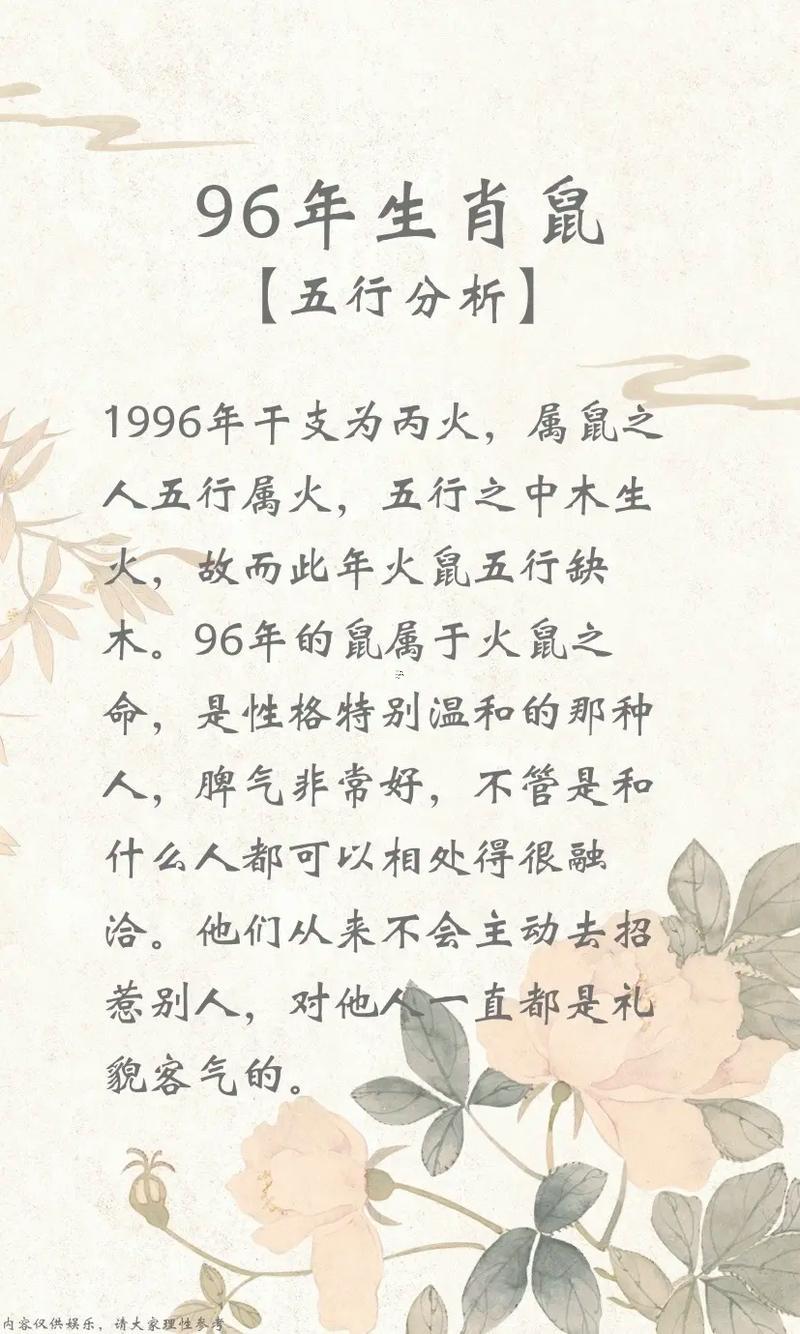 96年生肖鼠
【五行分析】
1996年干支为丙火，属鼠之
人五行属火，五行之中木生
火，故而此年火鼠五行缺
木。96年的鼠属于火鼠之
命，是性格特别温和的那种
人，脾气非常好，不管是和
什么人都可以相处得很融
洽。他们从来不会主动去招
惹别人，对他人一直都是礼
貌客气的。
内容仅供娱乐，请大家理性参考